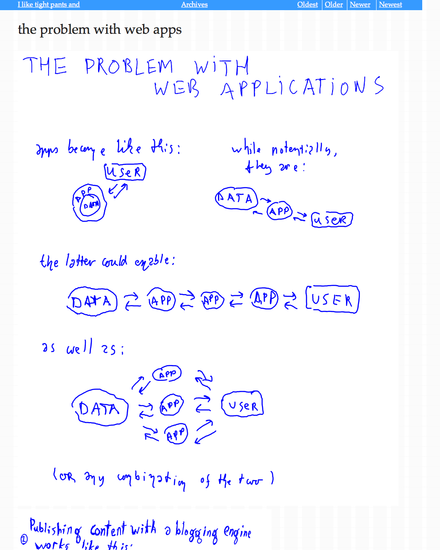 I like tight pants and
Archives
Oldest Older Newer Newest
the problem with web apps
THE PROBLEM WITH
WEB APPLICATIONS
apps become like this:
while potentially,
they are:
USER
APP
DATA
DATA
APP
USER
the latter could enable:
DATA APP APP APP USER
as well as:
APP
DATA APP USER
APP
(or any combination of the two)
① Publishing content with a blogging engine
works like this: